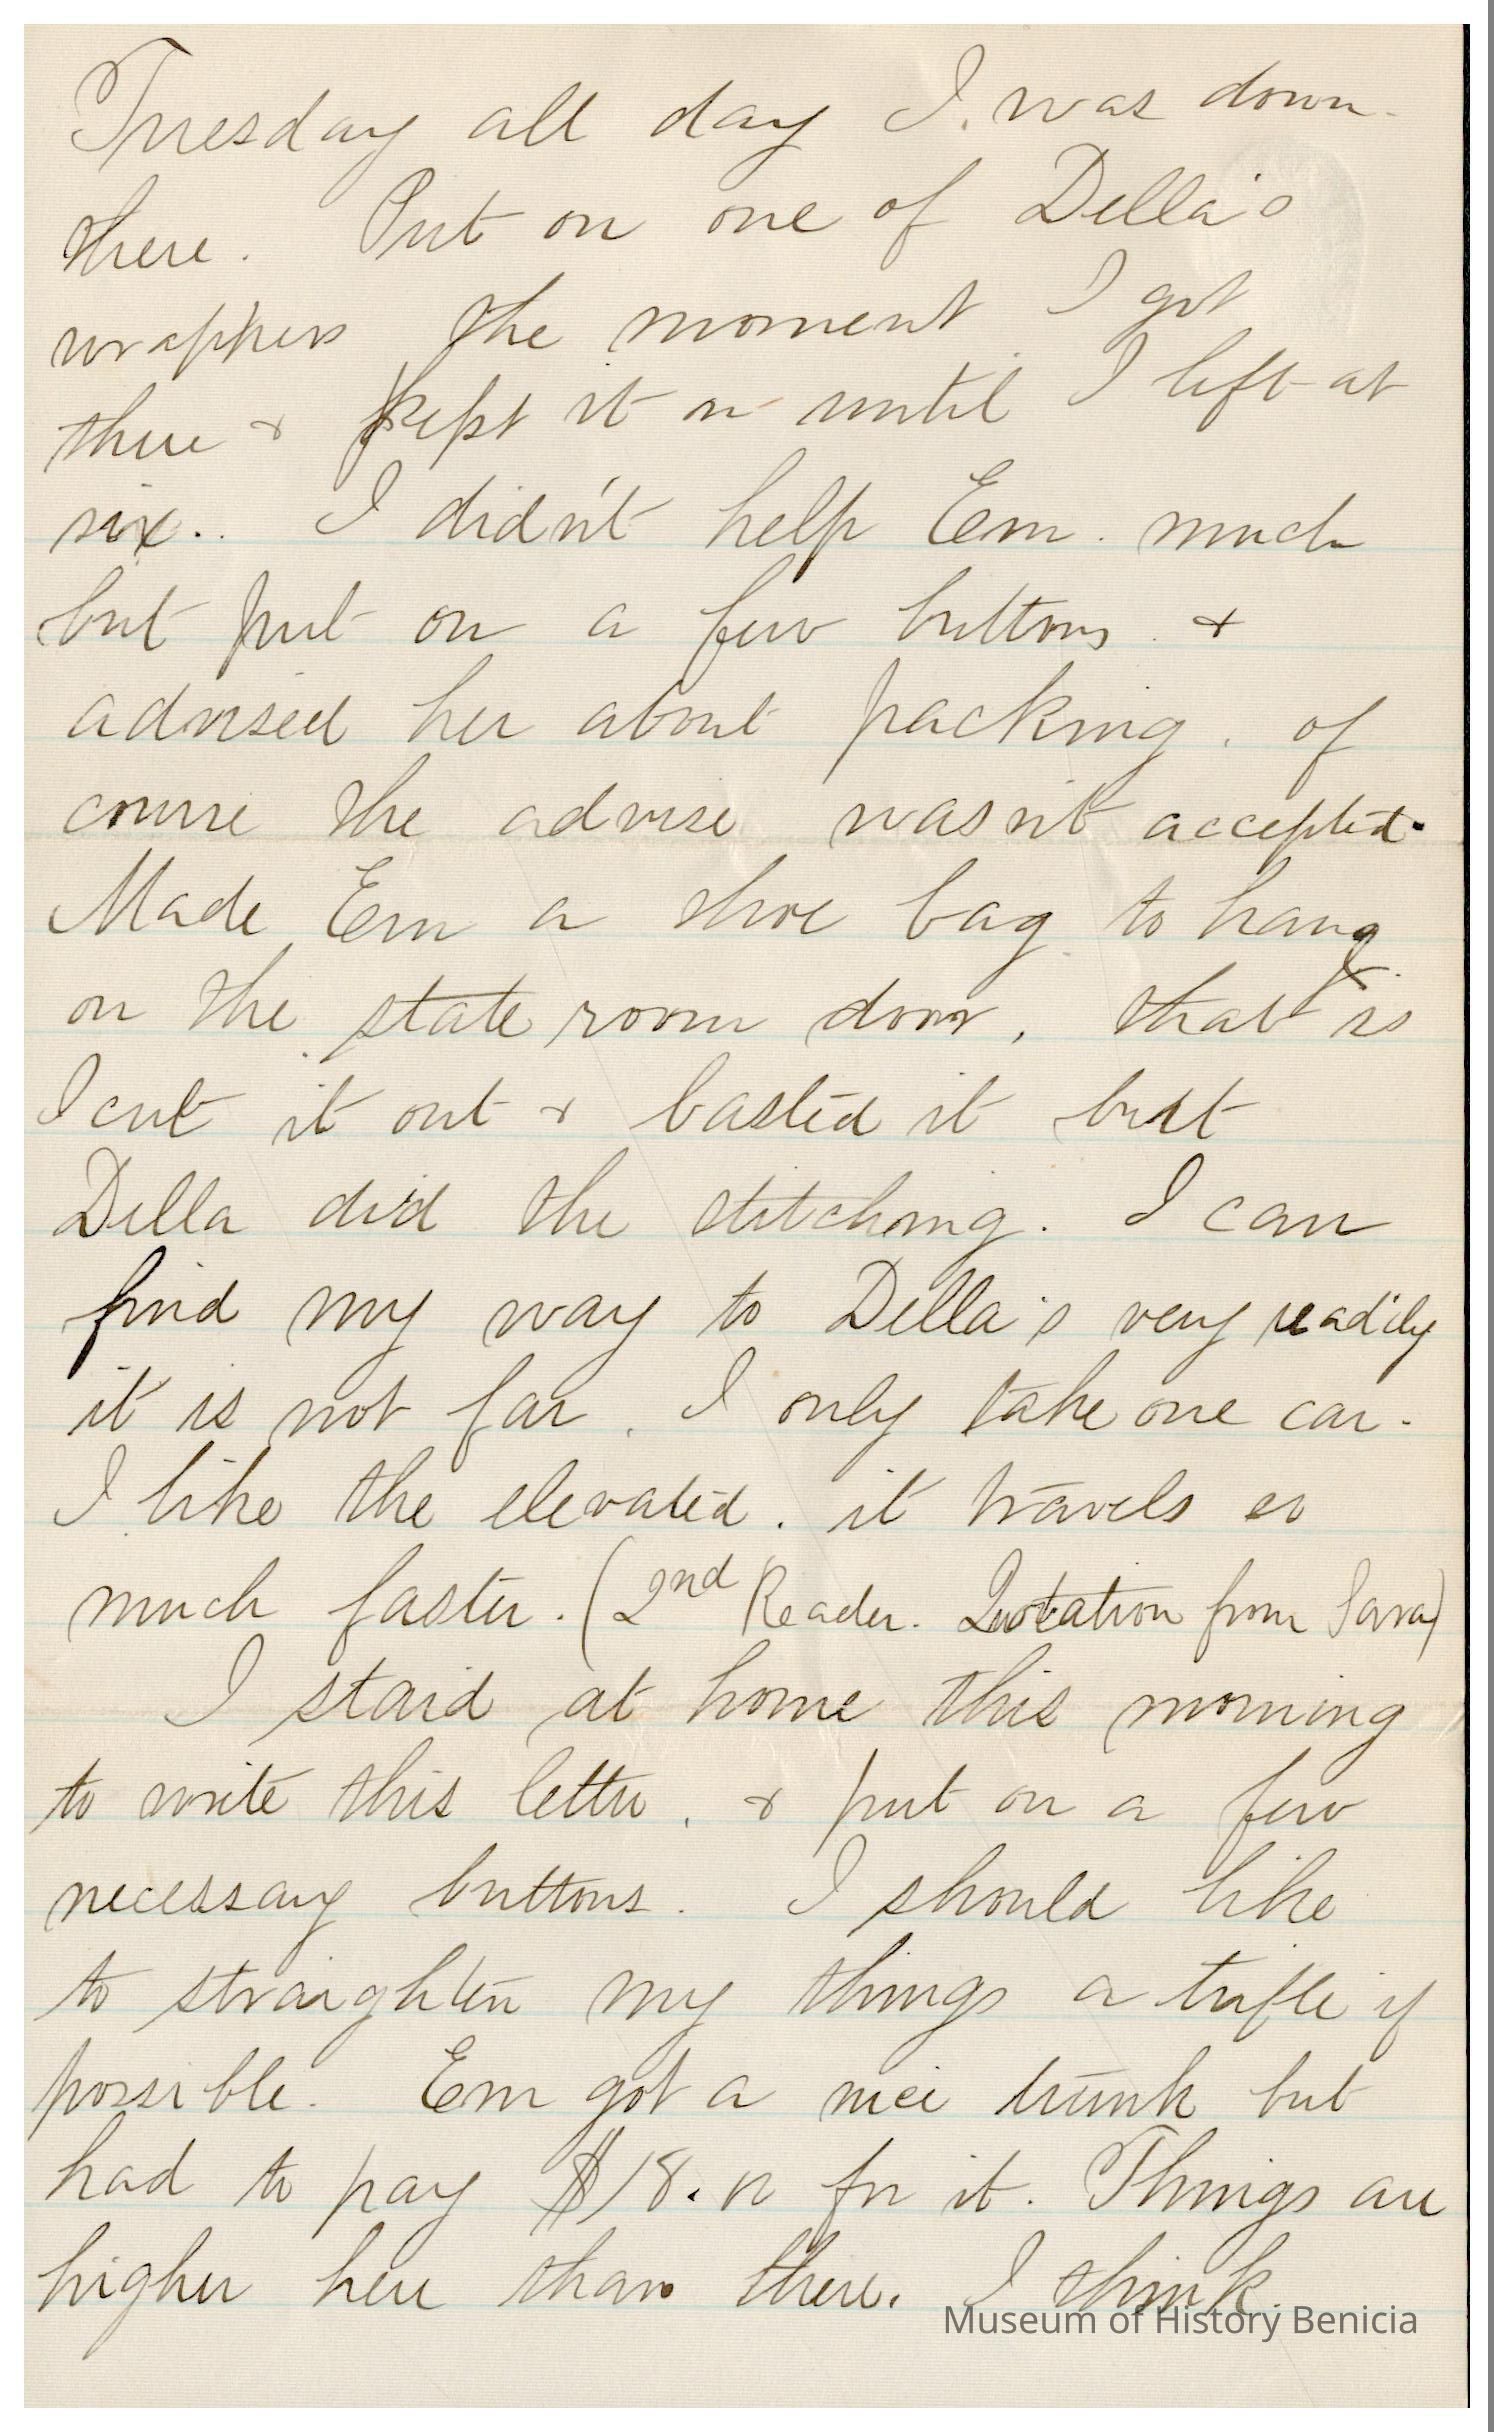 Tuesday all day I was down
there. Put on one of Della's
wrappers the moment I got
there & kept it on until I left at
six. I didn't help Em. much
but put on a few buttons &
advised her about packing. of
course the advise wasn't accepted.
Made Em a shoe bag to hang
on the state room door, that is
I cut it out & basted it but
Della did the stitching. I can
find my way to Della's very readily
it is not far. I only take one car.
I like the elevated. it travels so
much faster. (2nd Reader. Quotation from Sara)
I staid at home this morning
to write this letter. & put on a few
necessary buttons. I should like
to straighten my things a trifle if
possible. Em got a nice trunk but
had to pay $18. for it. Things are
higher here than there. I think.
Museum of History Benicia